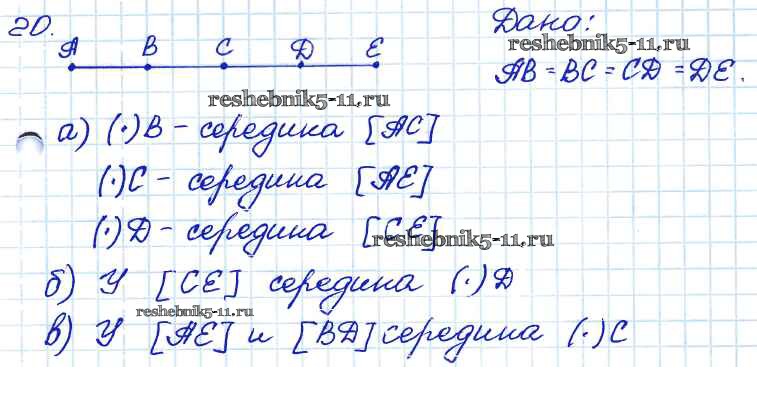 20.
A B C D E
Дано:
reshebnik5-11.ru
AB = BC = CD = DE.
reshebnik5-11.ru
а) (·)B – середина [AC]
(·)C – середина [AE]
(·)D – середина [CE]
reshebnik5-11.ru
б) У [CE] середина (·)D
reshebnik5-11.ru
в) У [AE] и [BD] середина (·)C